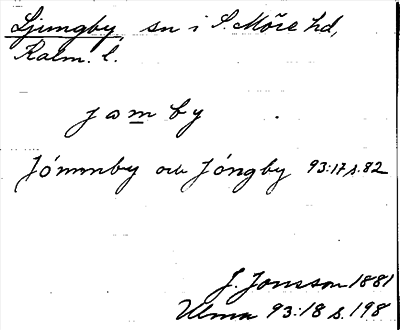 Ljungby, sn i S. Möre hd,
Kalm. l.
jamby
Jómmby och Jóngby 93:17 s. 82
J. Jonsson 1881
Ulma 93:18 s. 198